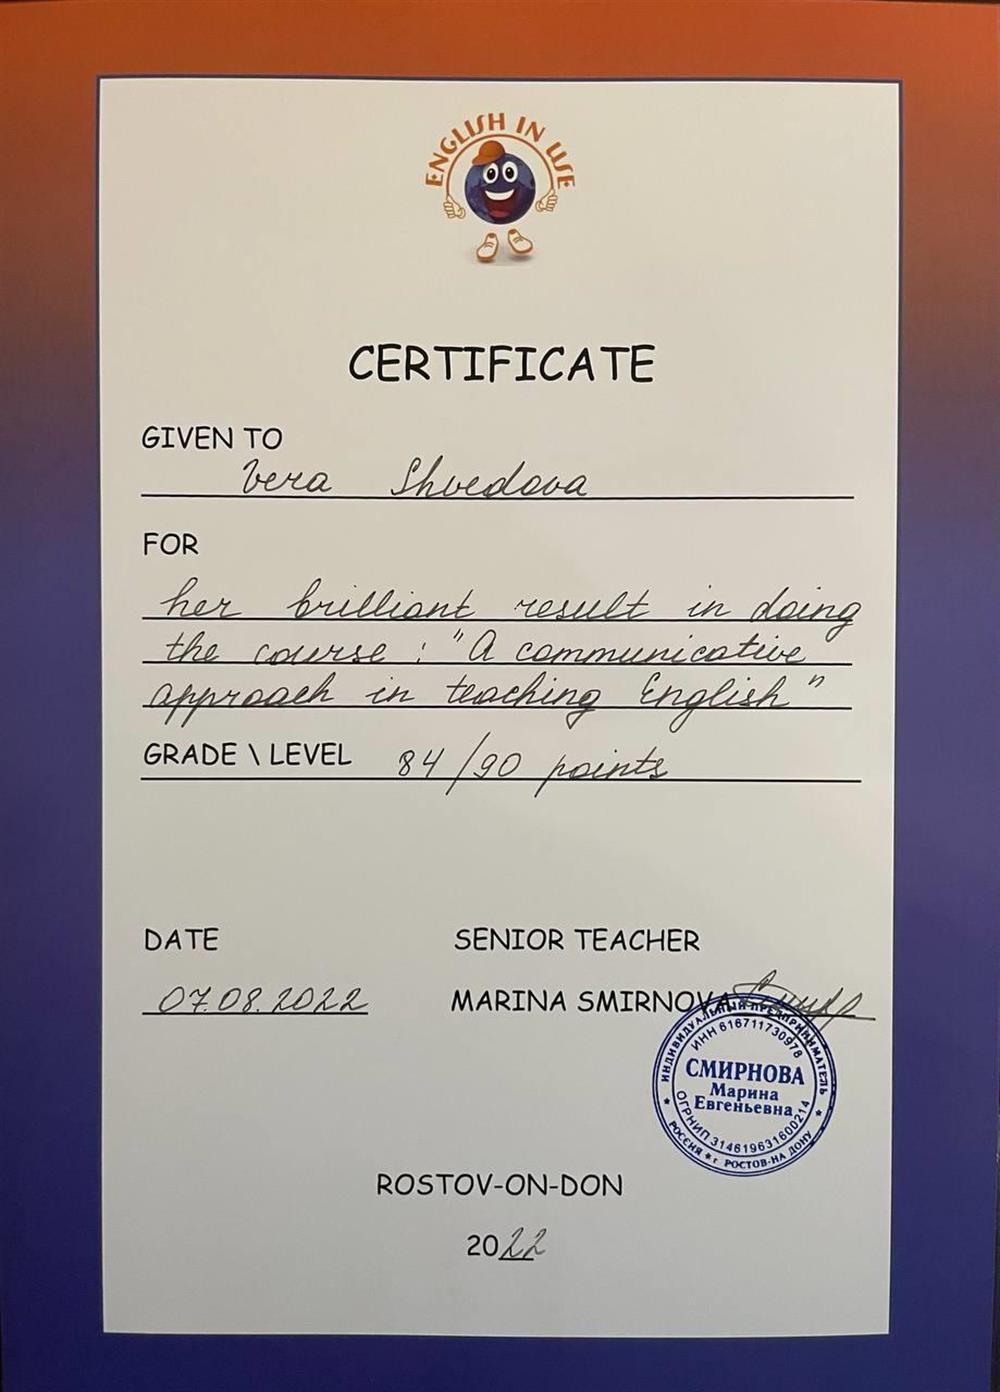 ENGLISH IN USE
CERTIFICATE
GIVEN TO
Vera Shvedova
FOR
her brilliant result in doing
the course : "A communicative
approach in teaching English"
GRADE \ LEVEL 84/90 points
DATE
SENIOR TEACHER
07.08.2022
MARINA SMIRNOVA
ИНДИВИДУАЛЬНЫЙ ПРЕДПРИНИМАТЕЛЬ
ИНН 616711730978
СМИРНОВА
Марина
Евгеньевна
ОГРНИП 314619631600214
РОССИЯ * г. РОСТОВ-НА ДОНУ
ROSTOV-ON-DON
2022